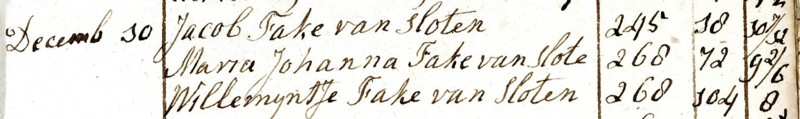 Decemb 10 Jacob Fake van Sloten 245 18 10 7/12
Maria Johanna Fake van Slote 268 72 9 2/6
Willemyntje Fake van Sloten 268 104 8